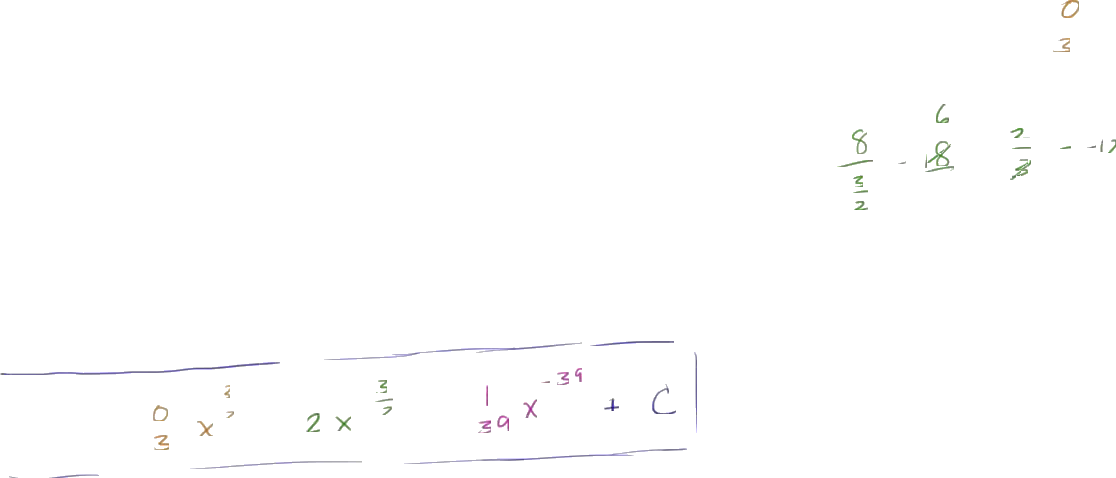 0
3
6
8 / (3/2) - 18 2/3 - -12
0/3 x^(3/2) 2x^(3/2) 1/39 x^(-39) + C